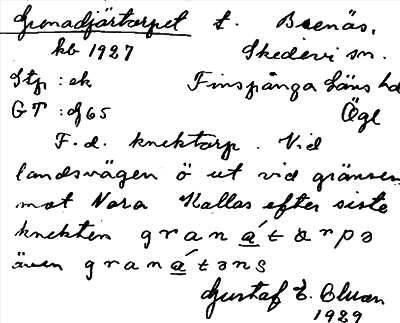 Grenadjärtorpet t. Brenäs,
kb 1927 Skedevi sn.
Stp : ek Finspånga läns hd
GT : df 65 Ögl
F. d. knektorp. Vid
landsvägen ö ut vid gränsen
mot Nora Kallas efter siste
knekten granát
även granátəns
Gustaf E.
1929